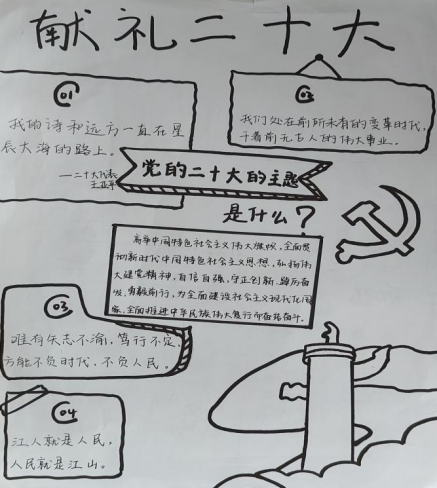 献礼二十大
01
我的诗和远方一直在星
辰大海的路上。
——二十大代表
王亚平
02
我们处在前所未有的变革时代,
干着前无古人的伟大事业。
党的二十大的主题
是什么?
高举中国特色社会主义伟大旗帜,全面贯
彻新时代中国特色社会主义思想,弘扬伟
大建党精神,自信自强、守正创新、踔厉奋
发、勇毅前行,为全面建设社会主义现代化国
家、全面推进中华民族伟大复兴而团结奋斗。
03
唯有矢志不渝,笃行不怠,
方能不负时代,不负人民。
04
江人就是人民,
人民就是江山。